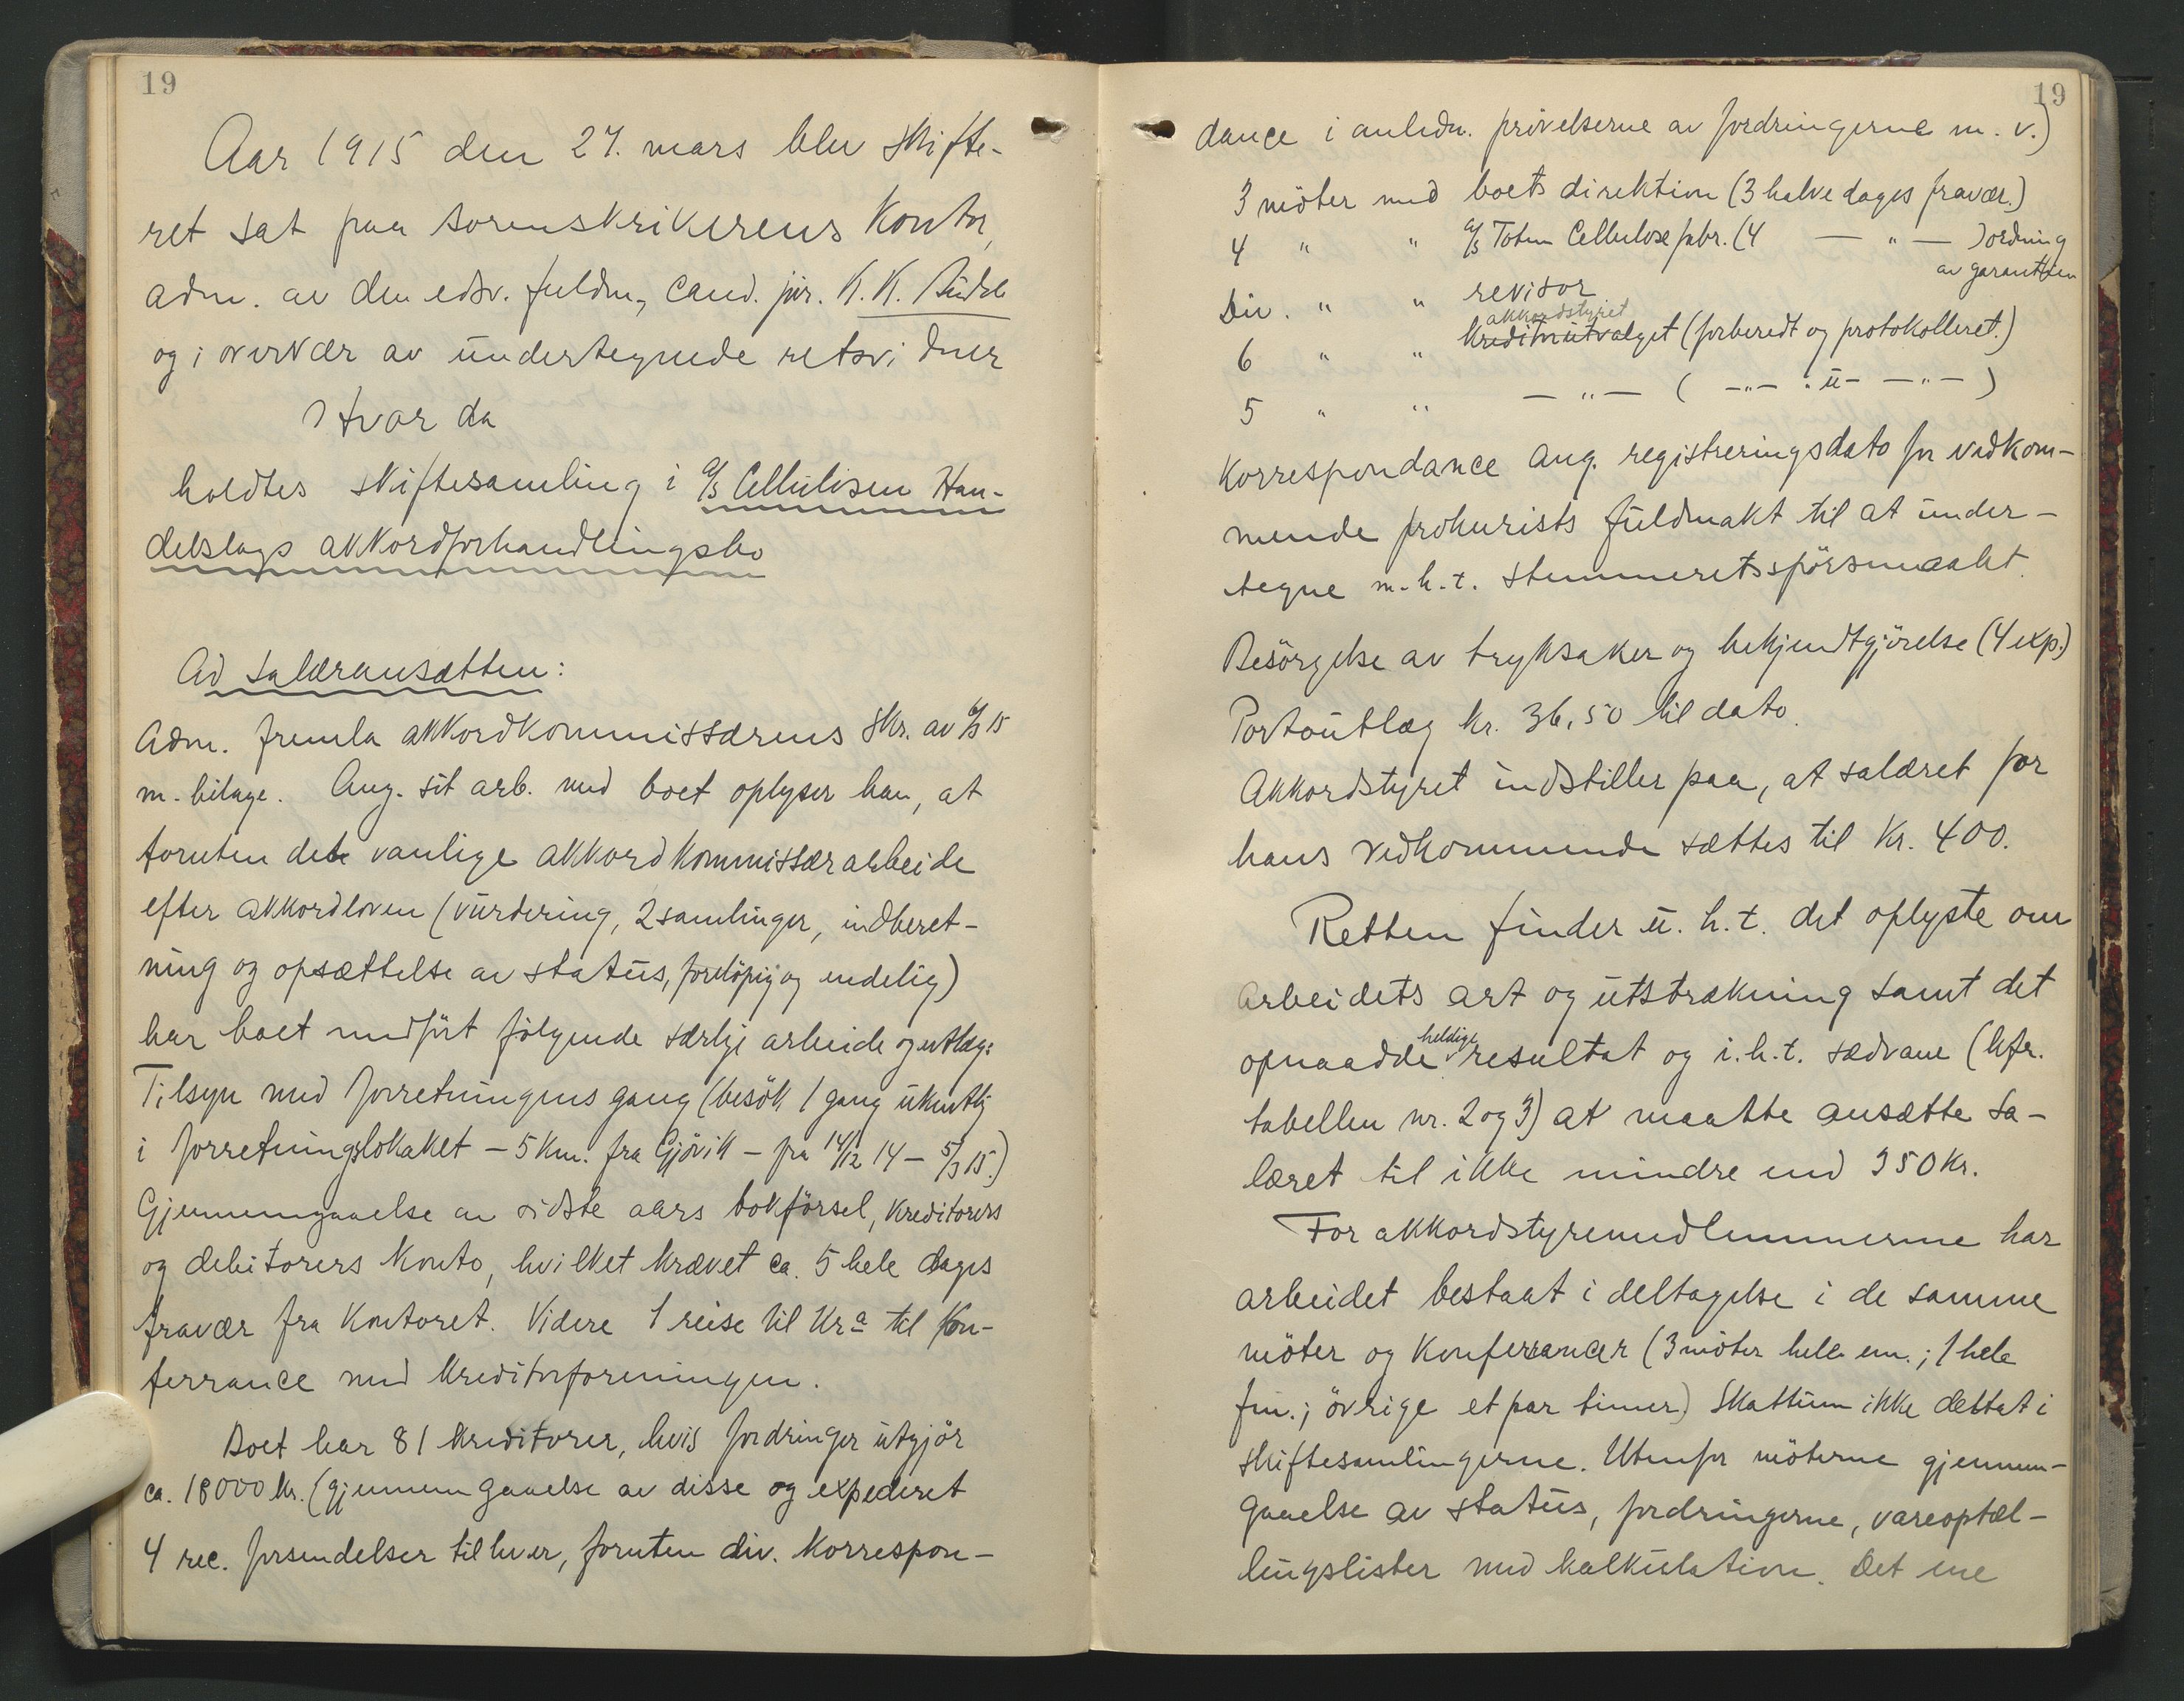 19
Aar 1915 den 27. mars blev skifte-
ret sat paa sorenskriverens kontor,
adm. av den edsv. fuldm., cand. jur. K. K.
og i overvær av undertegnede retsvidner
Hvor da
holdtes skiftesamling i A/S Cellulosen Han-
delslags akkordforhandlingsbo
Ad salæransætten:
Adm. fremla akkordkommissærens skr. av
m. bilage. Ang. sit arb. med boet oplyser han, at
foruten det vanlige akkordkommissærarbeide
efter akkordloven (vurdering, 2 samlinger, indberet-
ning og opsættelse av status, foreløpig og endelig)
har boet medført følgende særlige arbeide og utlæg:
Tilsyn med forretningens gang (besök 1 gang ukentlig
i forretningslokalet - 5 km. fra Gjövik - fra 14/12 14 - 5/3 15.)
Gjennemgaaelse av sidste aars bokførsel, kreditorers
og debitorers konto, hvilket krævet ca. 5 hele dages
fravær fra kontoret. Videre 1 reise til Kra til kon-
ferrance med kreditorforeningen.
Boet har 81 kreditorer, hvis fordringer utgjör
ca. 18000 kr. (gjennemgaaelse av disse og expederet
4 rec. forsendelser til hver, foruten div. korrespon-
19
dance i anledn. prövelserne av fordringerne m. v.)
3 möter med boets direktion (3 halve dages fravær.)
4 " " A/S Toten Cellulosefabr. (4 — " — ) ordning
av garantien
Div. " " revisor
akkordstyret
6 " " kreditorutvalget (forberedt og protokolleret.)
5 " " — " — ( —"— : u- —"— )
Korrespondance ang. registreringsdato for vedkom-
mende prokurists fuldmakt til at under-
tegne m.h.t. stemmeretsspörsmaalet.
Besörgelse av tryksaker og bekjendtgjörelse (4 exp.)
Portoutlæg kr. 36,50 til dato.
Akkordstyret indstiller paa, at salæret for
hans vedkommende sættes til kr. 400.
Retten finder u. h. t. det oplyste om
arbeidets art og utstrækning samt det
heldige
opnaadde resultat og i.h.t. sædvane (kfr.
tabellen nr. 2 og 3) at maatte ansætte sa-
læret til ikke mindre end 350 kr.
For akkordstyremedlemmerne har
arbeidet bestaat i deltagelse i de samme
möter og konferrancer (3 möter hele em.; 1 hele
fm.; övrige et par timer) Skattum ikke deltat i
skiftesamlingerne. Utenfor möterne gjennem-
gaaelse av status, fordringerne, vareoptæl-
lingslister med kalkulation. Det ene